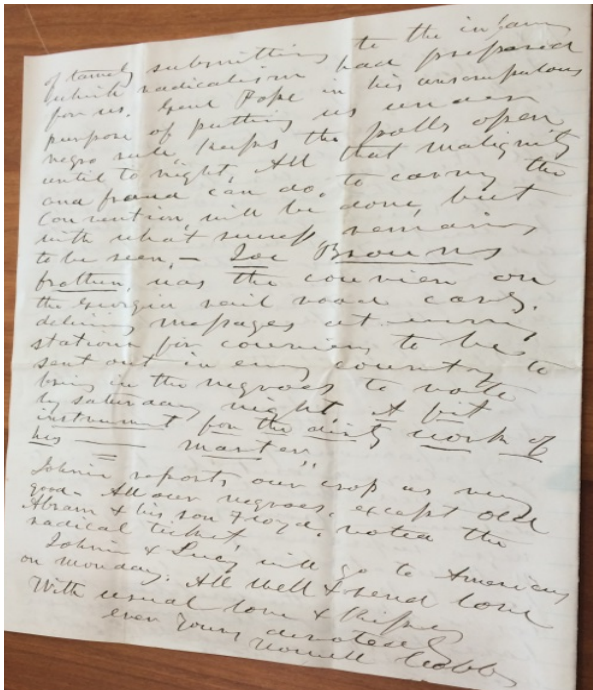 of tamely submitting to the infamy
which radicalism had prepared
for us. Genl Pope in his unscrupulous
purpose of putting us under
negro rule, keeps the polls open
until to night, All that malignity
and fraud can do, to carry the
Convention will be done, but
with what success remains
to be seen, — Joe Browns
brother, was the courier on
the Georgia rail road cars.
delivering messages at every
station for couriers to be
sent out in every country to
bring in the negroes to vote
by saturday night. A fit
instrument for the dirty work of
his —— master,
Johnie reports our crop as very
good - All our negroes, except old
Abram & his son Floyd, voted the
radical ticket,
Johnie & Lucy will go to Americus
on monday. All well & send love
With usual love & kisses
ever yours devotedly
Howell Cobb